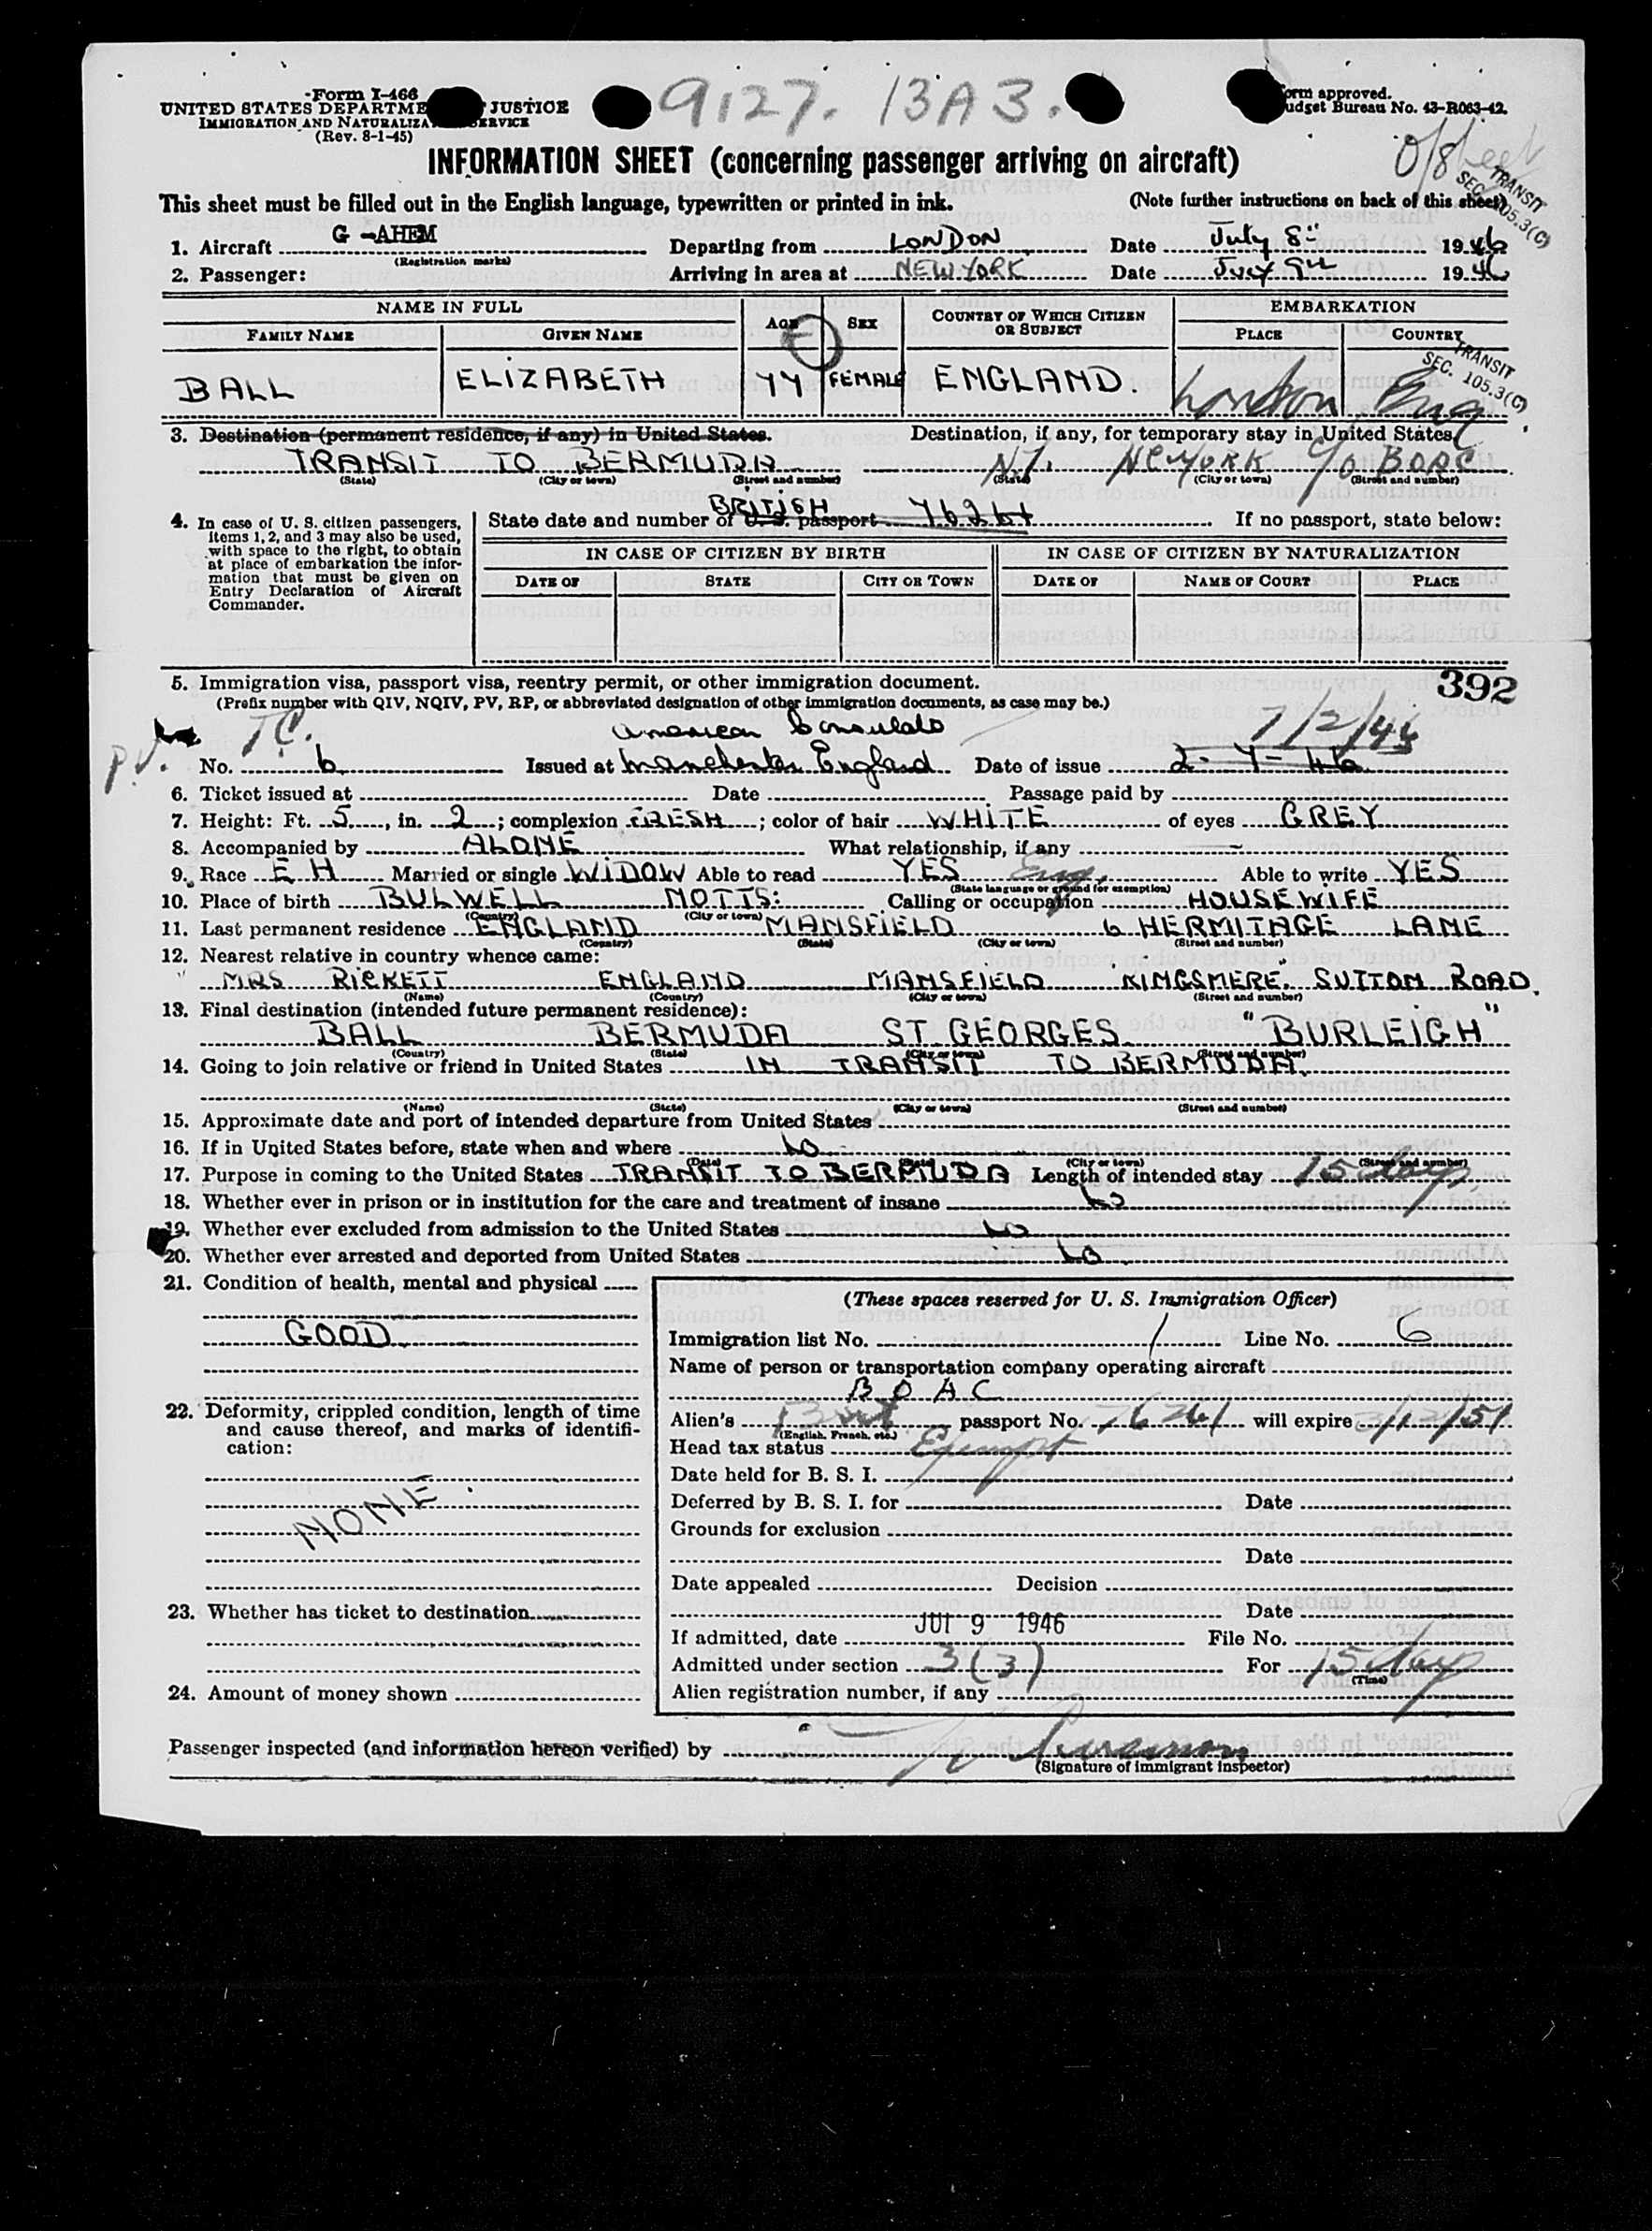 9127. 13A3.
Form I-466
UNITED STATES DEPARTME JUSTICE
IMMIGRATION AND NATURALIZA ERVICE
(Rev. 8-1-45)
orm approved.
udget Bureau No. 43-R063-42.
O/8
TRANSIT
SEC. 105.3(C)
INFORMATION SHEET (concerning passenger arriving on aircraft)
This sheet must be filled out in the English language, typewritten or printed in ink. (Note further instructions on back of this sheet)
1. Aircraft G-AHEM Departing from LONDON Date July 8th 1946
(Registration marks)
2. Passenger: Arriving in area at NEW YORK Date July 9th 1946
NAME IN FULL AGE SEX COUNTRY OF WHICH CITIZEN OR SUBJECT EMBARKATION
FAMILY NAME GIVEN NAME PLACE COUNTRY
TRANSIT
SEC. 105.3(C)
BALL ELIZABETH 77 FEMALE ENGLAND. London Eng
3. Destination (permanent residence, if any) in United States. Destination, if any, for temporary stay in United States
TRANSIT TO BERMUDA N.Y. NEW YORK C/O BOAC
(State) (City or town) (Street and number) (State) (City or town) (Street and number)
4. In case of U. S. citizen passengers, items 1, 2, and 3 may also be used, with space to the right, to obtain at place of embarkation the information that must be given on Entry Declaration of Aircraft Commander.
BRITISH
State date and number of U. S. passport 76261 If no passport, state below:
IN CASE OF CITIZEN BY BIRTH IN CASE OF CITIZEN BY NATURALIZATION
DATE OF STATE CITY OR TOWN DATE OF NAME OF COURT PLACE
392
5. Immigration visa, passport visa, reentry permit, or other immigration document.
(Prefix number with QIV, NQIV, PV, RP, or abbreviated designation of other immigration documents, as case may be.)
P.V. TC. American Consulate 7/2/46
No. 6 Issued at Manchester England Date of issue 2-7-46
6. Ticket issued at Date Passage paid by
7. Height: Ft. 5, in. 2; complexion FRESH; color of hair WHITE of eyes GREY
8. Accompanied by ALONE What relationship, if any –
9. Race E H Married or single WIDOW Able to read YES Eng. Able to write YES
(State language or ground for exemption)
10. Place of birth BULWELL NOTTS: Calling or occupation HOUSEWIFE
(Country) (City or town)
11. Last permanent residence ENGLAND MANSFIELD 6 HERMITAGE LANE
(Country) (State) (City or town) (Street and number)
12. Nearest relative in country whence came:
MRS RICKETT ENGLAND MANSFIELD KINGSMERE. SUTTON ROAD.
(Name) (Country) (City or town) (Street and number)
13. Final destination (intended future permanent residence):
BALL BERMUDA ST GEORGES "BURLEIGH"
(Country) (State) (City or town) (Street and number)
14. Going to join relative or friend in United States IN TRANSIT TO BERMUDA.
(Name) (State) (City or town) (Street and number)
15. Approximate date and port of intended departure from United States
16. If in United States before, state when and where No
(Date) (State) (City or town) (Street and number)
17. Purpose in coming to the United States TRANSIT TO BERMUDA Length of intended stay 15 days
18. Whether ever in prison or in institution for the care and treatment of insane No
19. Whether ever excluded from admission to the United States No
20. Whether ever arrested and deported from United States No
21. Condition of health, mental and physical
GOOD
22. Deformity, crippled condition, length of time and cause thereof, and marks of identification:
NONE.
23. Whether has ticket to destination
24. Amount of money shown
(These spaces reserved for U. S. Immigration Officer)
Immigration list No. 1 Line No. 6
Name of person or transportation company operating aircraft
B O A C
Alien's Brit passport No. 76261 will expire 3/12/51
(English, French, etc.)
Head tax status Exempt
Date held for B. S. I.
Deferred by B. S. I. for Date
Grounds for exclusion
Date
Date appealed Decision
Date
If admitted, date JUL 9 1946 File No.
Admitted under section 3(3) For 15 days
(Time)
Alien registration number, if any
Passenger inspected (and information hereon verified) by
(Signature of immigrant inspector)